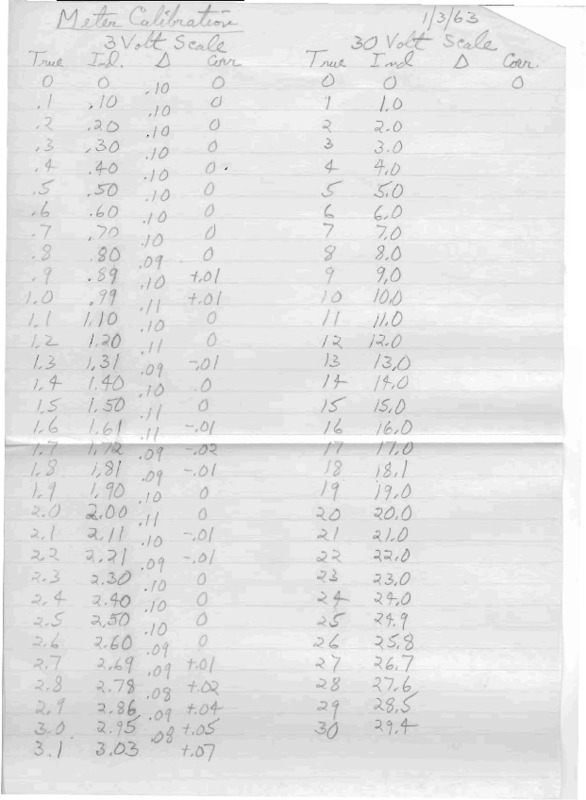 Meter Calibration 1/3/63
3 Volt Scale 30 Volt Scale
True Ind. Δ Corr True Ind Δ Corr.
0 0 0 0 0 0
.10
.1 .10 0 1 1.0
.10
.2 .20 0 2 2.0
.10
.3 .30 0 3 3.0
.10
.4 .40 0 4 4.0
.10
.5 .50 0 5 5.0
.10
.6 .60 0 6 6.0
.10
.7 .70 0 7 7.0
.10
.8 .80 0 8 8.0
.09
.9 .89 +.01 9 9.0
.10
1.0 .99 +.01 10 10.0
.11
1.1 1.10 0 11 11.0
.10
1.2 1.20 0 12 12.0
.11
1.3 1.31 -.01 13 13.0
.09
1.4 1.40 .0 14 14.0
.10
1.5 1.50 0 15 15.0
.11
1.6 1.61 -.01 16 16.0
.11
1.7 1.72 -.02 17 17.0
.09
1.8 1.81 -.01 18 18.1
.09
1.9 1.90 0 19 19.0
.10
2.0 2.00 0 20 20.0
.11
2.1 2.11 -.01 21 21.0
.10
2.2 2.21 -.01 22 22.0
.09
2.3 2.30 0 23 23.0
.10
2.4 2.40 0 24 24.0
.10
2.5 2.50 0 25 24.9
.10
2.6 2.60 0 26 25.8
.09
2.7 2.69 +.01 27 26.7
.09
2.8 2.78 +.02 28 27.6
.08
2.9 2.86 +.04 29 28.5
.09
3.0 2.95 +.05 30 29.4
.08
3.1 3.03 +.07